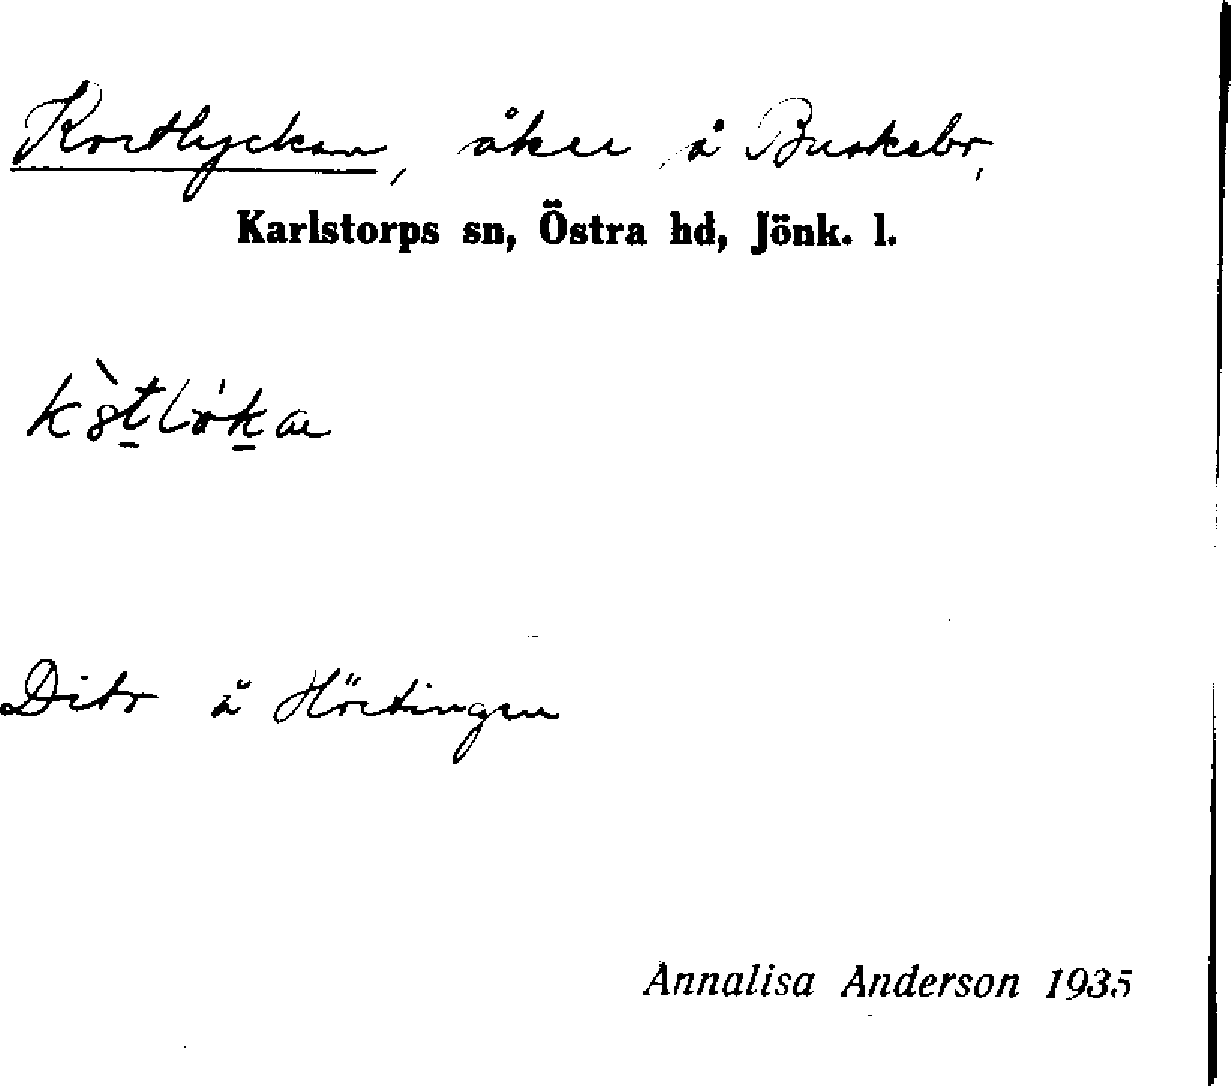 Kortlyckan, åker å Buskebo,
Karlstorps sn, Östra hd, Jönk. l.
Dito å Hörtingen
Annalisa Anderson 1935